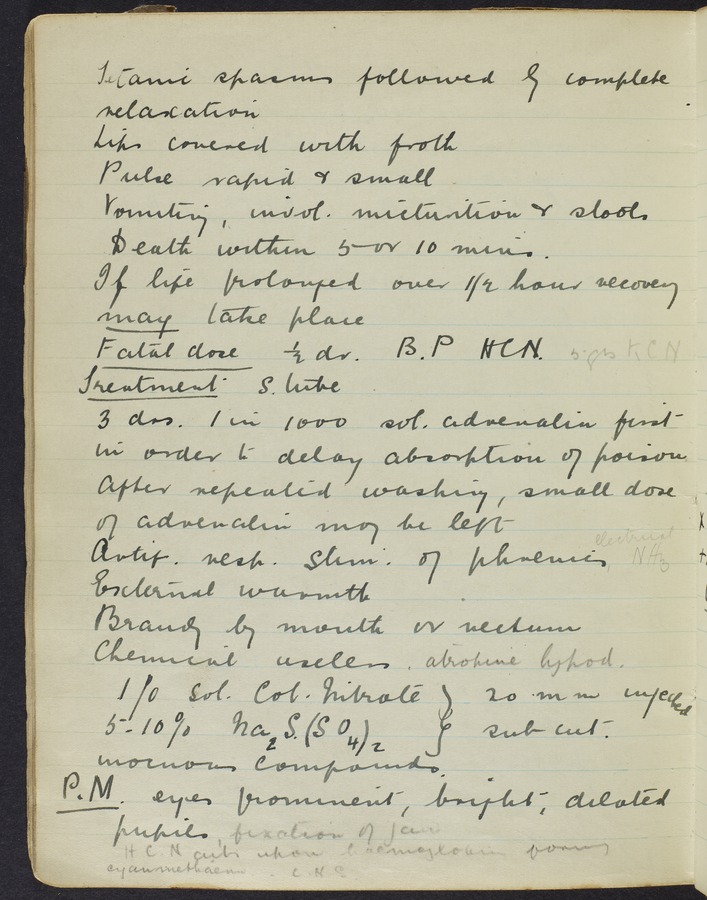 Tetanic spasms followed by complete
relaxation
Lips covered with froth
Pulse rapid & small
Vomiting, invol. micturition & stools
Death within 5 or 10 mins.
If life prolonged over 1/2 hour recovery
may take place
Fatal dose ½ dr. B.P HCN. 5 grs KCN
Treatment S. tube
3 drs. 1 in 1000 sol. adrenalin first
in order to delay absorption of poison
After repeated washing, small dose
of adrenalin may be left
Artif. resp. Stim. of phrenics electrical NH3
External warmth
Brandy by mouth or rectum
Chemical useless. atropine hypod.
1% Sol. Cob. Nitrate } 20 mm injected
5-10% Na2S.(SO4)2 } sub cut.
innocuous compounds.
P.M. eyes prominent, bright, dilated
pupils, fixation of jaw
HCN acts upon haemoglobin forming
cyanmethaem.